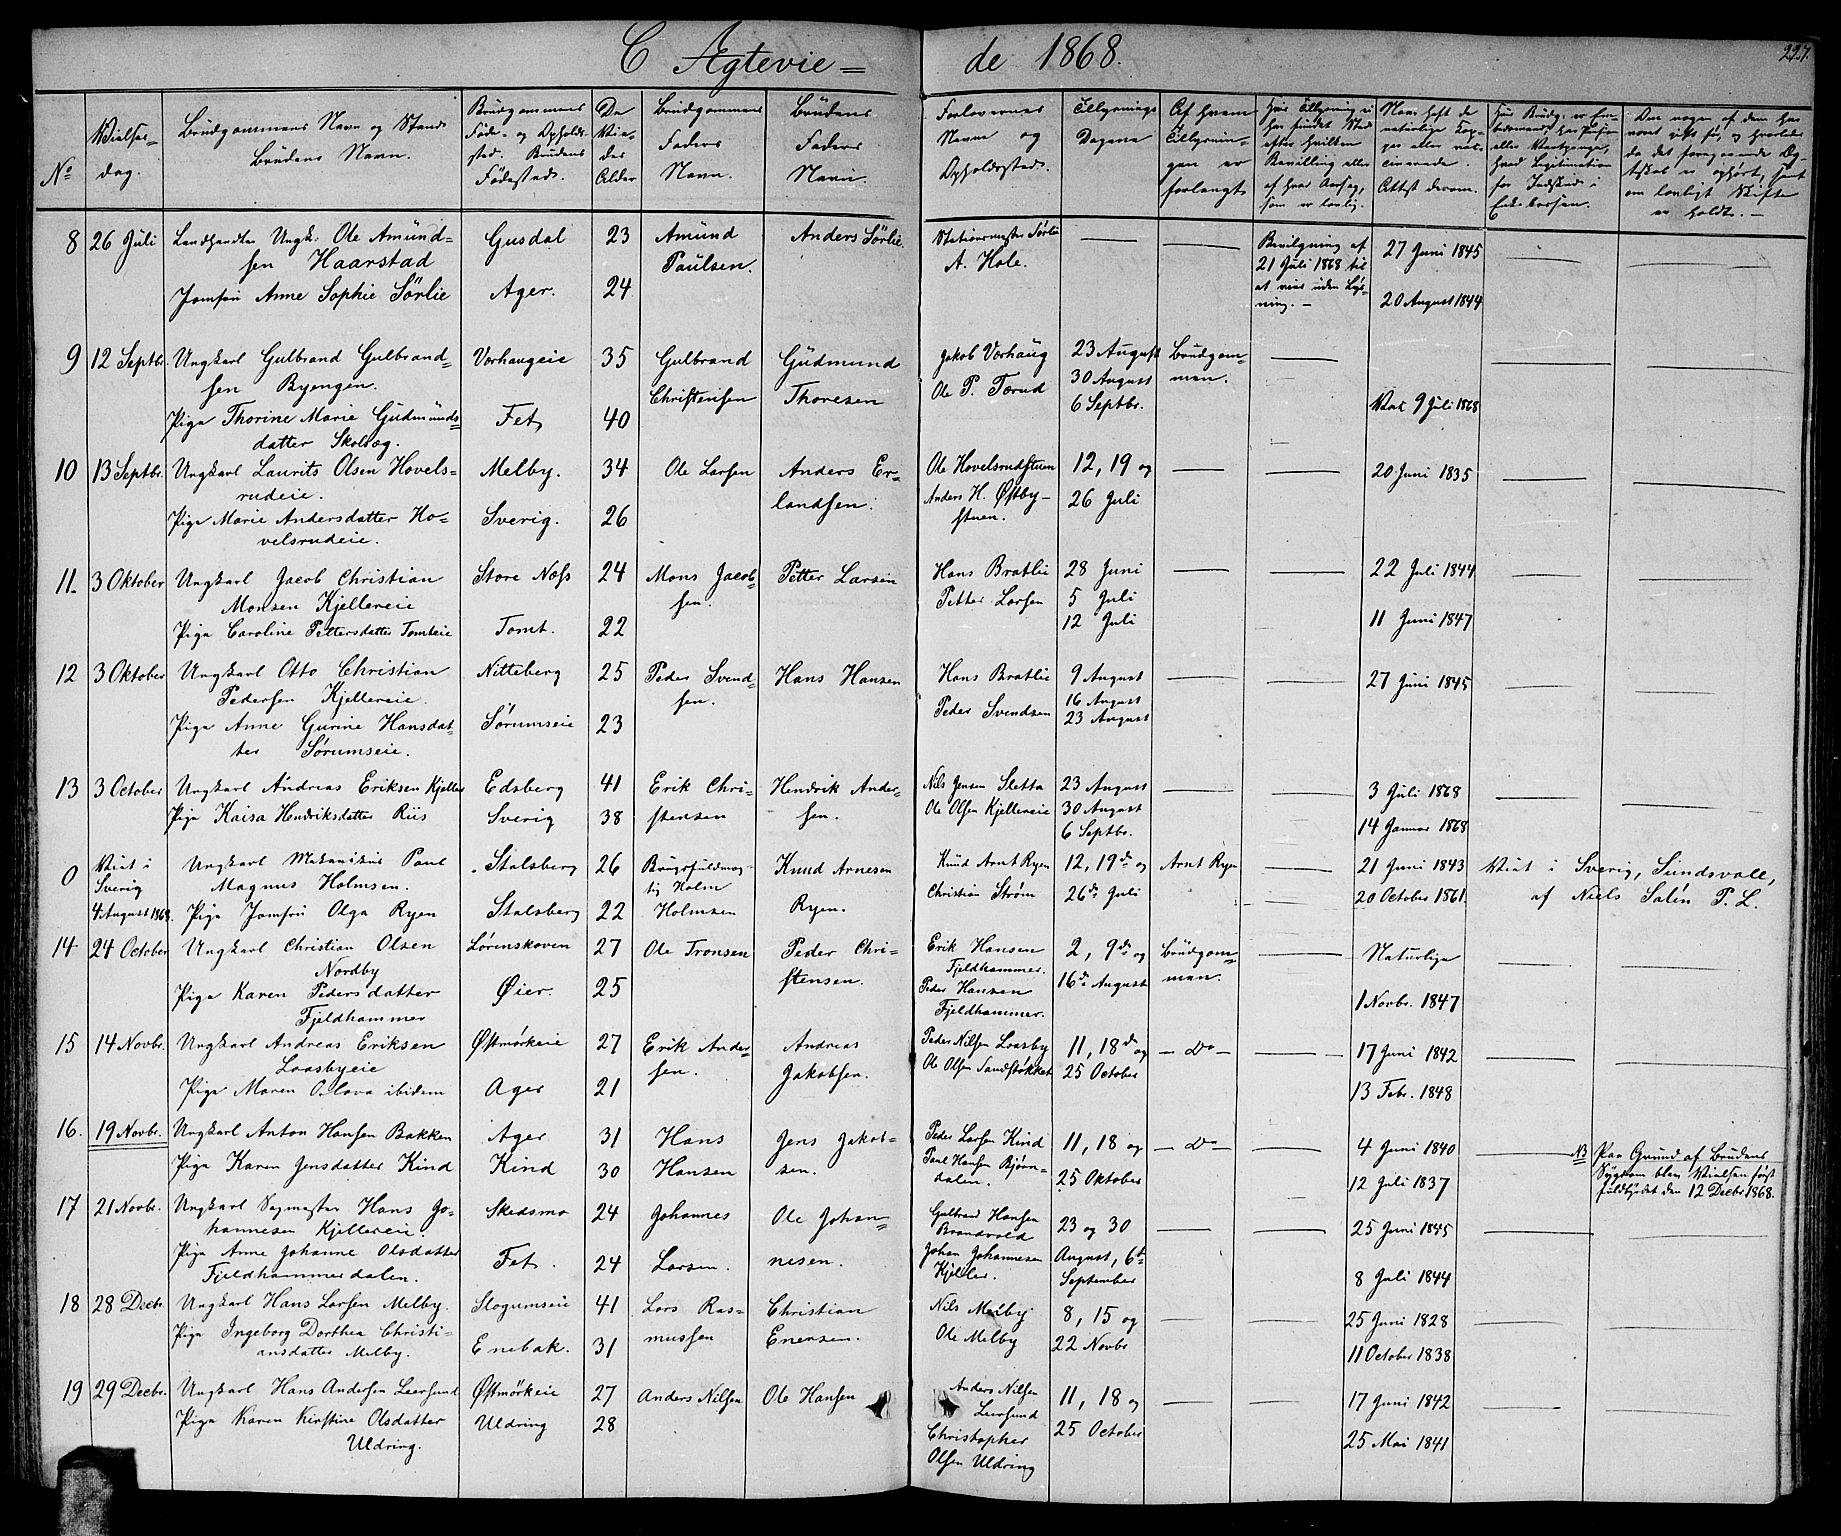 C Agtevie = de 1868.
227.
No
Vielses-
dag.
Brudgommens Navn og Stand.
Brudens Navn.
Brudgommens
Føde- og Opholds-
sted. Brudens
Fødested.
De
Vie-
des
Alder
Brudgommens
Faders
Navn.
Brudens
Faders
Navn.
Forlovernes
Navn og
Opholdssted.
Tillysnings
Dagene
Af hvem
Tillysnin-
gen er
forlangt
8 26 Juli Landhandler Ungk. Ole Amund- Gusdal 23 Amund Anders Sørlie Stationsmester Sørlie Bevilgning af 27 Juni 1845
sen Haarstad Paulsen. A. Hole. 21 Juli 1868 til
Jomfru Anne Sophie Sørlie Ager. 24 at vies uden Lys-
ning. 20 August 1844
9 12 Septbr. Ungkarl Gulbrand Gulbrand- Vorhaugeie 35 Gulbrand Gudmund Jakob Vorhaug 23 August Brudgom-
sen Byengen. Christensen Thoresen Ole P. Tærud 30 August men.
Pige Thorine Marie Gudmunds- Fet 40 6 Septbr. Vac 9 Juli 1868
datter Skolbøg.
10 13 Septbr. Ungkarl Laurits Olsen Hovels- Melby. 34 Ole Larsen Anders Er- Ole Hovelsrudstuen 12, 19 og 20 Juni 1835
rudeie. landsen. Anders H. Østby- 26 Juli
Pige Marie Andersdatter Ho- Sverig. 26 stuen.
velsrudeie.
11. 3 Oktober Ungkarl Jacob Christian Store Næss 24 Mons Jacob- Petter Larsen Hans Bratlie 28 Juni 22 Juli 1844
Monsen Kjellereie sen. Petter Larsen 5 Juli
Pige Caroline Pettersdatter Tomteie Tomt. 22 12 Juli 11 Juni 1847
12 3 Oktober Ungkarl Otto Christian Nitteberg 25 Peder Svend- Hans Hansen Hans Bratlie 9 August 27 Juni 1845
Pedersen Kjellereie. sen. Peder Svendsen 16 August
Pige Anne Gurine Hansdat- Sørumseie 23 23 August
ter Sørumseie.
13 3 October Ungkarl Andreas Eriksen Kjeller Edsberg 41 Erik Chri- Hendrik Ander- Nils Jensen Sletta 23 August 3 Juli 1868
Pige Kaisa Hendriksdatter Riis Sverig 38 stensen sen. Ole Olsen Kjellereie 30 August
6 Septbr. 14 Januar 1868
0 Viet i Ungkarl Mekanikus Paul Stalsberg 26 Brugsfuldmæg- Knud Arnesen Knud Arnt Ryen 12, 19de og Arnt Ryen 21 Juni 1843 Viet i Sverig, Sundsvall,
Sverig Magnus Holmsen. tig Holm
4 August 1868. Pige Jomfru Olga Ryen Stalsberg 22 Holmsen Ryen. Christian Strøm 26de Juli 20 October 1861. af Niels Salén P. L.
14 24 October Ungkarl Christian Olsen Lørenskoven 27 Ole Tronsen Peder Chri- Erik Hansen 2, 9de og Brudgom- Naturlige
Nordby stensen. Fjeldhammer. 16de August men.
Pige Karen Pedersdatter Øier. 25 Peder Hansen 1 Novbr. 1847
Fjeldhammer Fjeldhammer.
15 14 Novbr. Ungkarl Andreas Eriksen Østmørkeie 27 Erik Ander- Andreas Peder Nilsen Losby 11, 18de og — Do — 17 Juni 1842
Loosbyeie sen. Jakobsen. Ole Olsen Sandstøkket 25 October
Pige Maren Olava ibidem Ager 21 13 Febr. 1848
16. 19 Novbr. Ungkarl Anton Hansen Bakken Ager 31 Hans Jens Jakob- Peder Larsen Kind 11, 18 og — Do — 4 Juni 1840 NB Paa Grund af Brudens
Pige Karen Jensdatter Kind Kind 30 Hansen sen. Paul Hansen Bjørn- 25 Oktober 12 Juli 1837 Sygdom blev Vielsen først
dalen. fuldbyrdet den 12 Decbr 1868.
17 21 Novbr. Ungkarl Sagmester Hans Jo- Skedsmo 24 Johannes Ole Johan- Gulbrand Hansen 23 og 30 25 Juni 1845
hannesen Kjellereie. Brandvold
Pige Anne Johanne Olsdatter Fet. 24 Larsen. nesen. Johan Johannesen August, 6te
Fjeldhammerdalen. Kjeller. September 8 Juli 1844
18 28 Decbr. Ungkarl Hans Larsen Melby. Slogumseie 41 Lars Ras- Christian Nils Melby 8, 15 og 25 Juni 1828
Pige Ingeborg Dorthea Christi- Enebak. 31 mussen Enersen. Ole Melby 22 Novbr 11 October 1838
ansdatter Melby.
19 29 Decbr. Ungkarl Hans Andersen Leersund Østmørkeie 27 Anders Nilsen Ole Hansen Anders Nilsen 11, 18 og 17 Juni 1842
Pige Karen Kirstine Olsdatter Uldring 28 Leersund 25 October
Uldring. Christopher 25 Mai 1841
Olsen Uldring